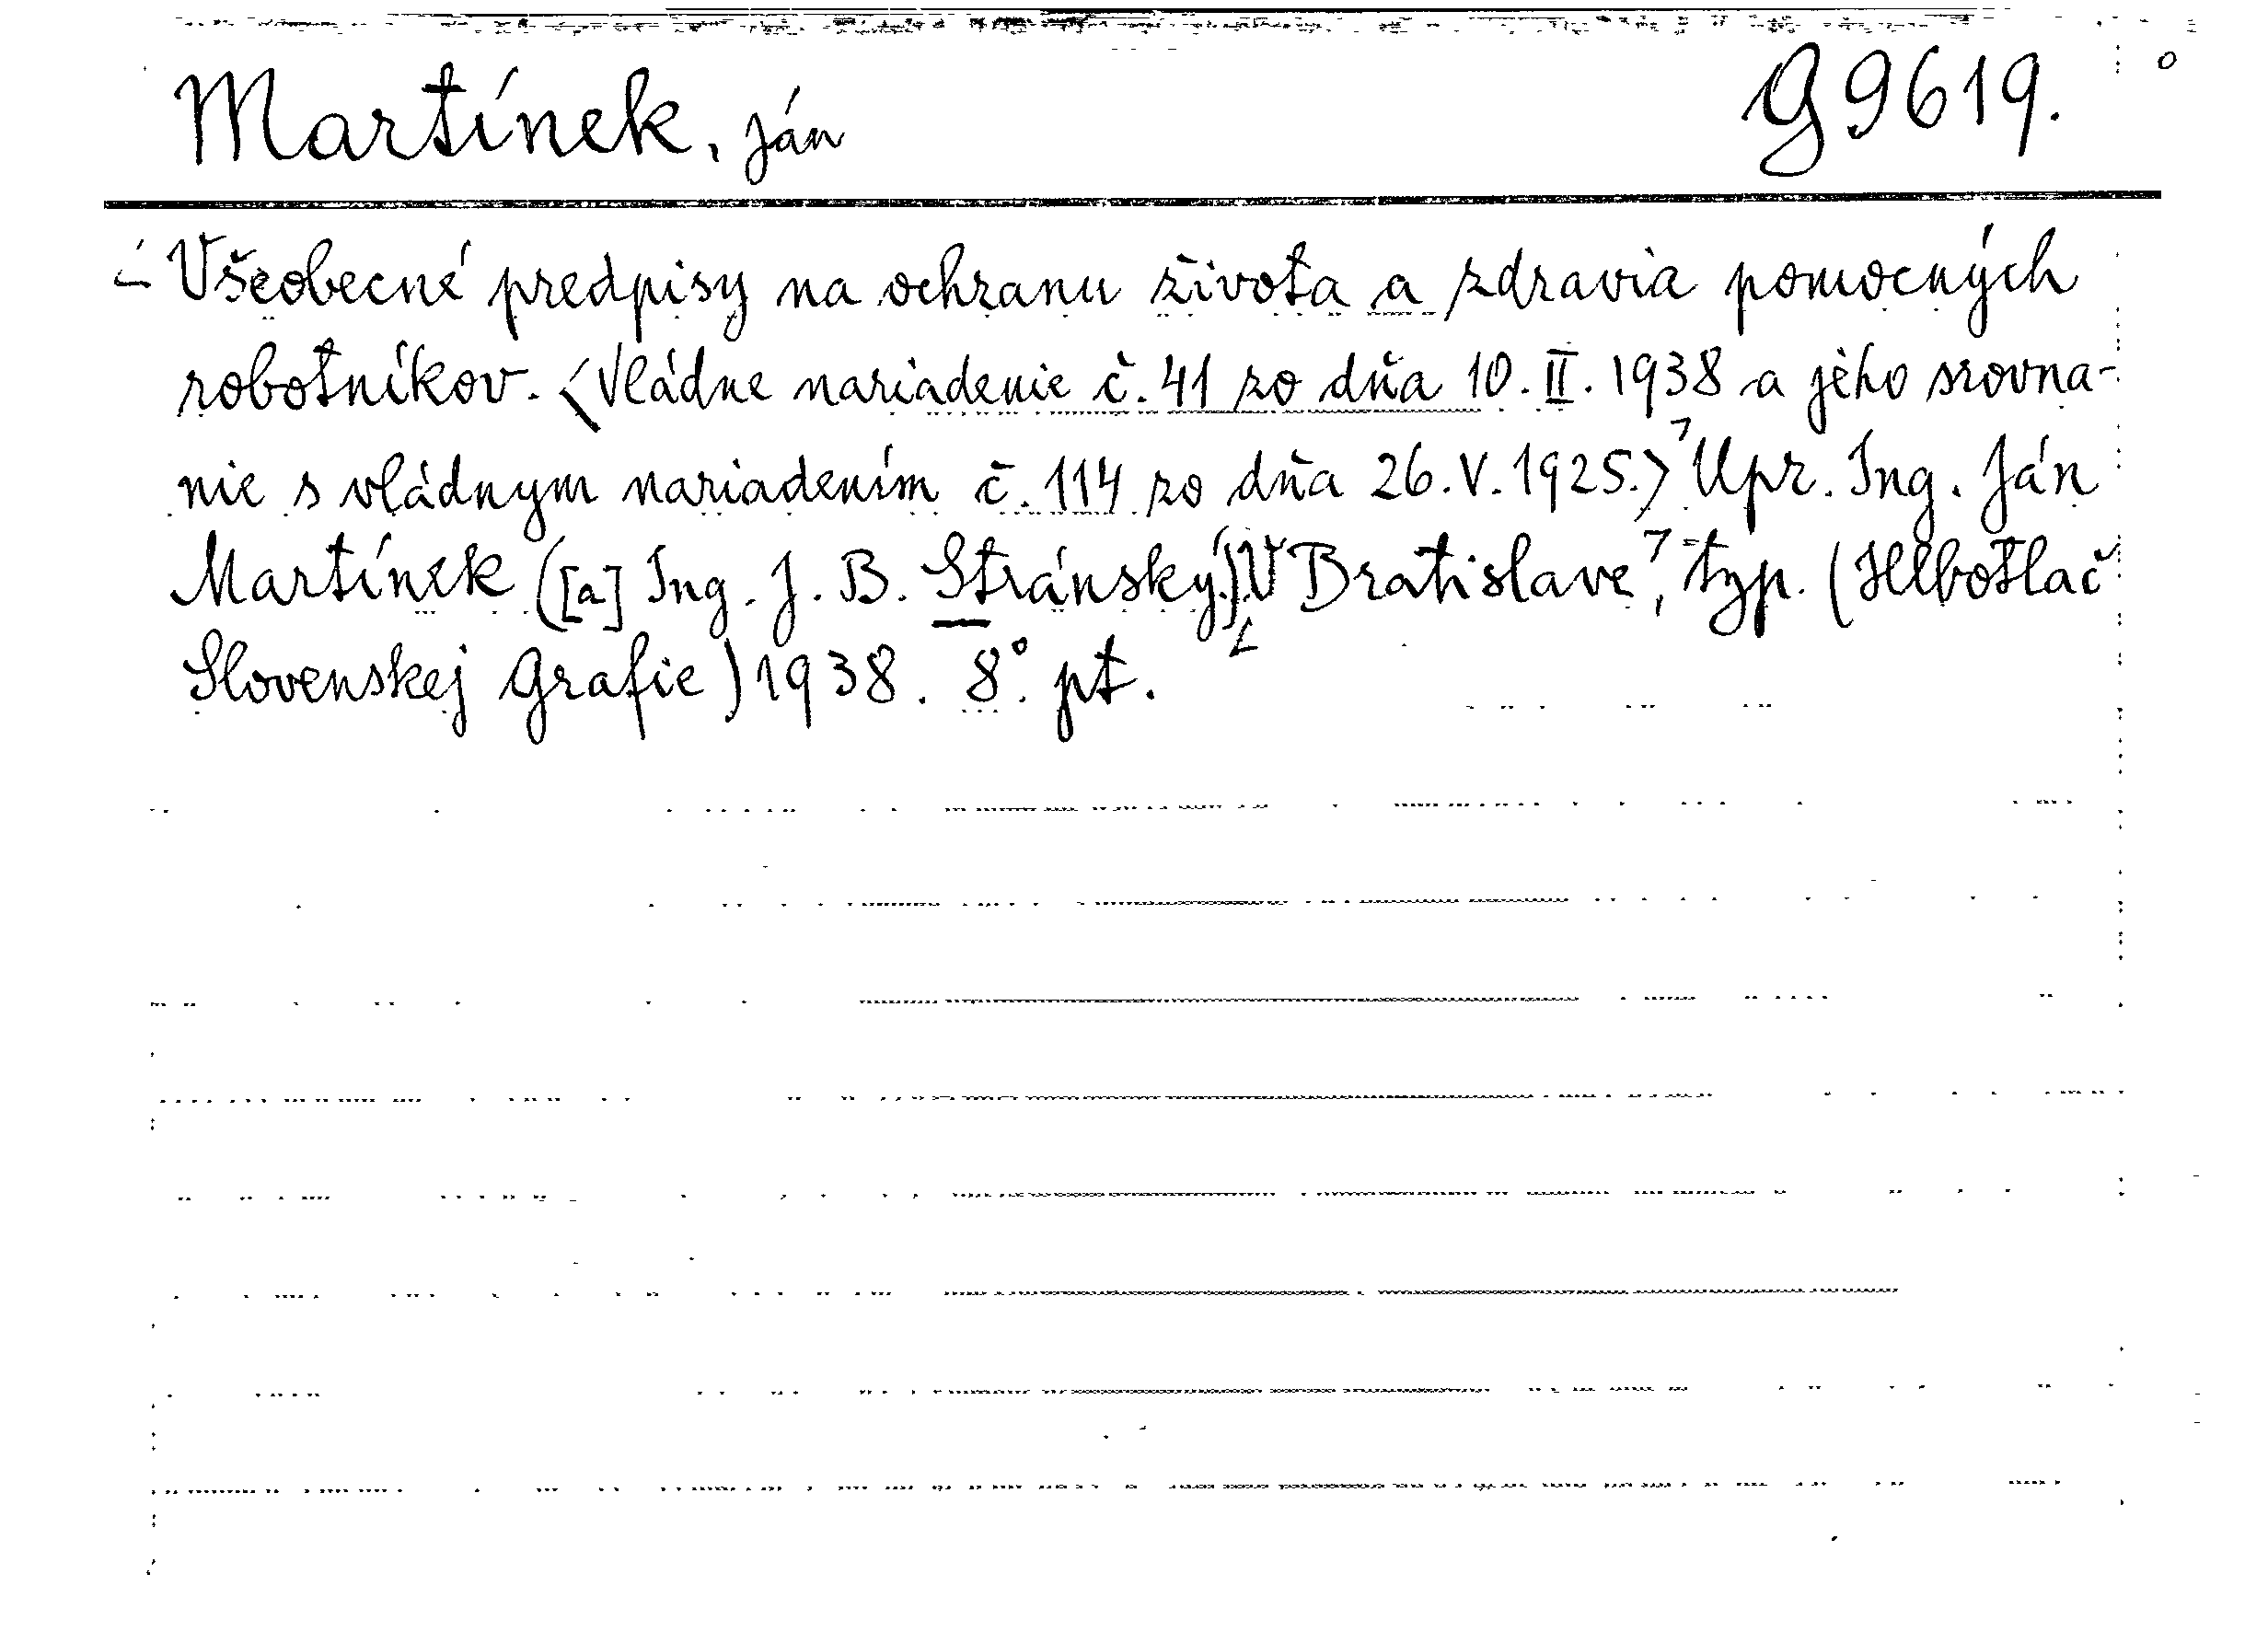 Martínek, Ján G 9619.
Všeobecné predpisy na ochranu života a zdravia pomocných
robotníkov. <Vládne nariadenie č. 41 zo dňa 10. II. 1938 a jeho srovna-
nie s vládnym nariadením č. 114 zo dňa 26. V. 1925.> Upr. Ing. Ján
Martínek ([a] Ing. J. B. Stránský.) V Bratislave, typ. (Hlbotlač
Slovenskej Grafie) 1938. 8°. pt.